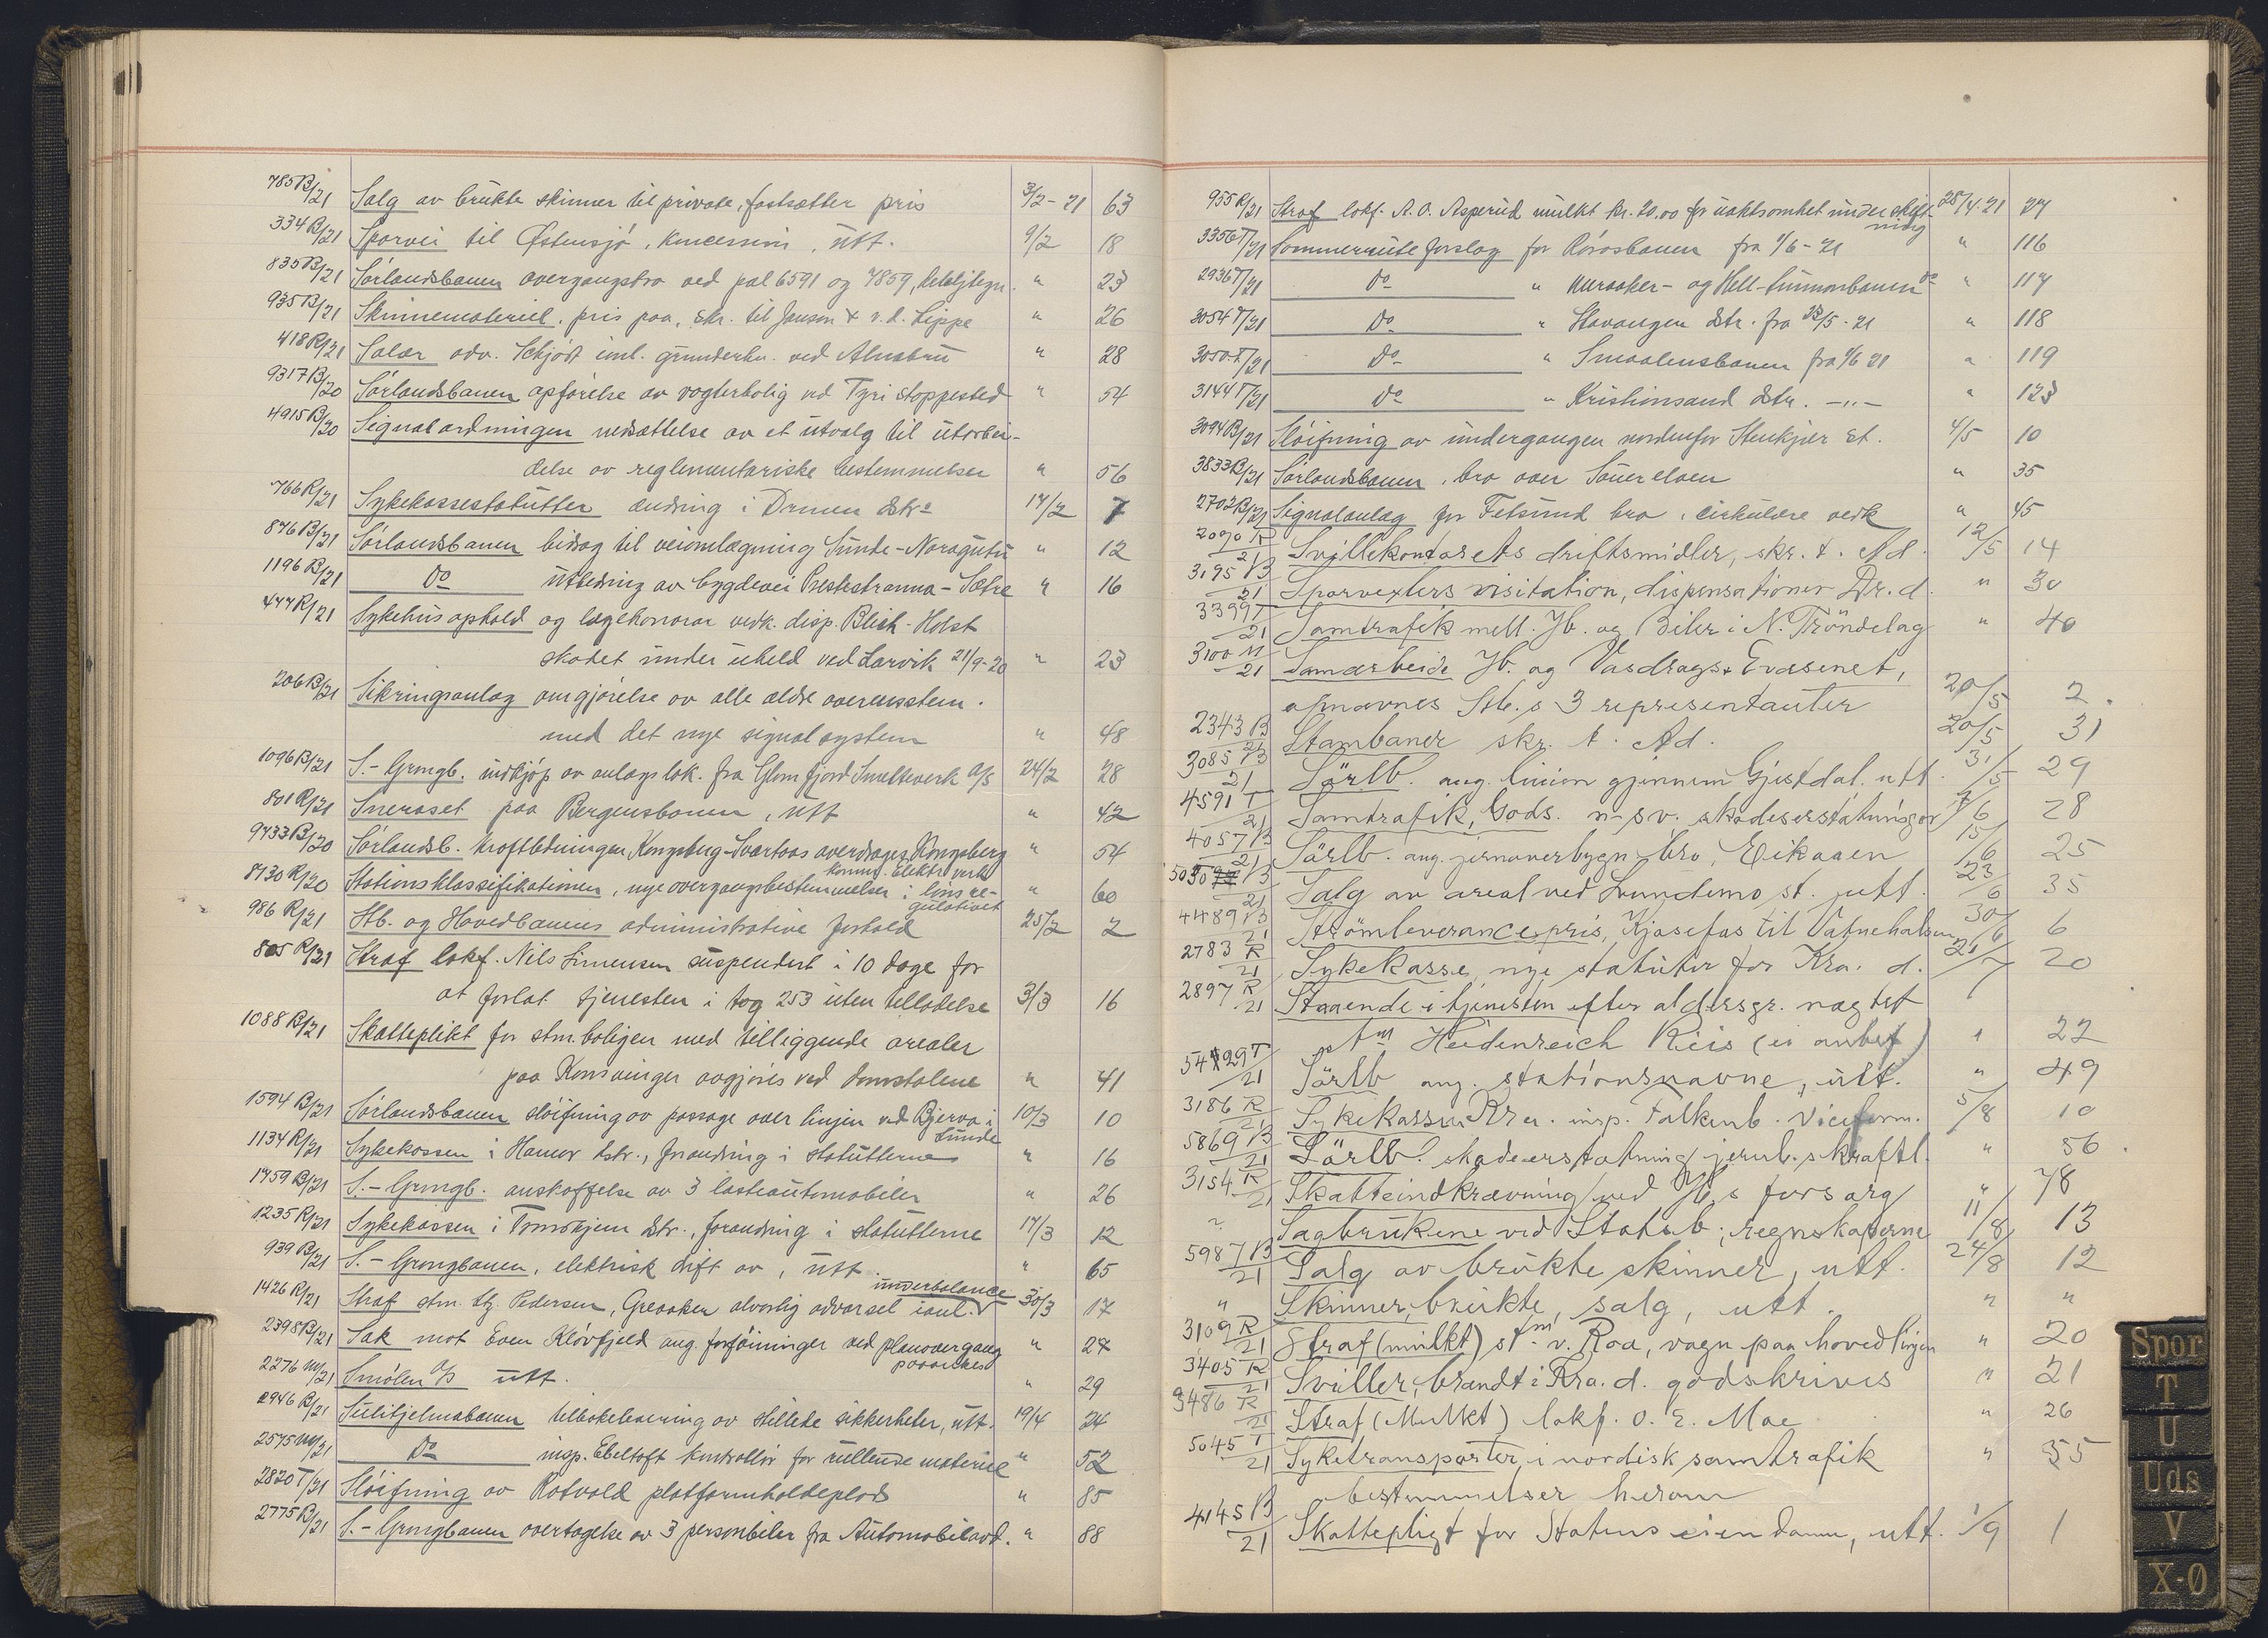 785 B/21 Salg av brukte skinner til private, fastsætter pris 3/2-21 63
334 B/21 Sporvei til Østensjö, koncession, utt. 9/2 18
835 B/21 Sörlandsbanen overgangsbro ved pal 6591 og 7859, detaljtegn. " 23
935 B/21 Skinnemateriel, pris paa, skr. til Janson & v.d. Lippe " 26
418 R/21 Salær adv. Schjödt inl. grunderhv. ved Alnabru " 28
9317 B/20 Sörlandsbanen opförelse av vogterbolig ved Tyri stoppested " 54
4915 B/20 Signalordningen nedsættelse av et utvalg til utarbei-
delse av reglementariske bestemmelser " 56
766 R/21 Sykekassestatutter ændring i Drmen dstr. 17/2 7
876 B/21 Sörlandsbanen bidrag til veiomlægning Sunde-Noragutu " 12
1196 B/21 Do utbedring av bygdevei Prestestranna - Sætre " 16
477 R/21 Sykehusophold og lægehonorar vedk. disp. Blich-Holst
skadet under uheld ved Larvik 21/9-20 " 23
206 B/21 Sikringsanlæg omgjörelse av alle ældre overensstem.
med det nye signalsystem " 48
1096 B/21 S.-Grongb. indkjöp av anlægslok. fra Glomfjord Smelteverk A/S 24/2 28
801 R/21 Sneraset paa Bergensbanen, utt " 42
9733 B/20 Sörlandsb. kraftledningen Kongsberg-Svartaas overdrages Kongsberg " 54
komm. Elektr. verk
8730 R/20 Stationsklassifikationen, nye overgangsbestemmelser i löns re- " 60
gulativet
986 R/21 Stb. og Hovedbanens administrative forhold 25/2 2
805 R/21 Straf lokf. Nils Simensen suspendert i 10 dage for
at forlat tjenesten i tog 253 uten tilladelse 3/3 16
1088 B/21 Skatteplikt for stm.boligen med tilliggende arealer
paa Konsvinger avgjöres ved domstolene " 41
1594 B/21 Sörlandsbanen slöifning av passage over linjen ved Bjerva i 10/3 10
Sunde
1134 R/21 Sykekassen i Hamar dstr., forandring i statutterne " 16
1759 B/21 S.-Grongb. anskaffelse av 3 lasteautomobiler " 26
1235 R/21 Sykekassen i Trondhjem dstr., forandring i statutterne 17/3 12
939 B/21 S.-Grongbanen, elektrisk drift av, utt. " 65
underbalance
1426 R/21 Straf stm. Pedersen, Greaaker alvorlig advarsel 30/3 17
2398 B/21 Sak mot Even Klövfjeld ang. forföininger ved planovergang " 27
paaankes
2276 M/21 Smölen A/S utt. " 29
2946 R/21 Sulitjelmabanen tilbakelevering av stillede sikkerheter, utt. 19/4 24
2575 M/21 Do insp. Ebeltoft kontrollör for rullende materiel " 52
2820 T/21 Slöifning av Rotvold platformholdeplads " 85
2775 B/21 S.-Grongbanen overtagelse av 3 personbiler fra Automobilavd. " 88
955 R/21 Straf lokf. A.O. Asperud mulkt kr. 20.00 for uaktsomhet under skift- 28/4-21 27
ning
3356 T/21 Sommerruteforslag for Rörosbanen fra 1/6-21 " 116
2936 T/21 Do " Meraaker- og Hell-Sunnanbanen do " 117
3054 T/21 Do " Stavanger dstr. fra 23/5-21 " 118
3050 T/21 Do " Smaalensbanen fra 1/6 21 " 119
3144 T/21 Do " Kristiansand dstr. -"- " 123
3094 B/21 Slöifning av undergangen nordenfor Stenkjær st. 4/5 10
3833 B/21 Sörlandsbanen, bro over Sauerelven " 35
2702 B/21 Signalanlæg for Fetsund bro, cirkulære vedk " 45
2090 R/21 Svillekontorets driftsmidler, skr. t. Ad. 12/5 14
3195 B/21 Sporvexlers visitation, dispensationer Dr. d. " 30
3399 T/21 Samtrafik mell. Jb. og Biler i N. Tröndelag " 40
3100 M/21 Samarbeide Jb. og Vasdrags & E.væsenet,
opnavnes Stb.s 3 representanter 20/5 2.
2343 B/21 Stambaner skr. t. Ad. 20/5 31
3085 B/21 Sörlb. ang. linien gjennem Gjesdal. utt. 31/5 29
4591 T/21 Samtrafik, Gods. n-sv. skadeserstatningsr 7/6 28
4057 B/21 Sörlb. ang. jernoverbygn. bro, Eikaaen 15/6 25
5050 B/21 Salg av areal ved Lundemo st. utt. 23/6 35
4489 B/21 Strömleverancepris, Kjosefos til Vatnehalsen 30/6 6
2783 R/21 Sykekasse, nye statuter for Kra. d. 21/7 20
2897 R/21 Staaende i tjenesten efter aldersgr. nægtet
Heidenreich Riis (ei anbef) " 22
5429 T/21 Sörlb ang. stationsnavne, utt. " 49
3186 R/21 Sykekassen Kra. insp. Falkenb. Viceform. 5/8 10
5869 B/21 Sörlb. skadeerstatning jernb.s kraftl. " 56.
3154 R/21 Skatteindkrævning ved Jb.s forsorg " 78
" Sagbrukene ved Statsb; regnskaperne 11/8 13
5987 B/21 Salg av brukte skinner, utt. 24/8 12
" Skinner, brukte, salg, utt. " "
3109 R/21 Straf (mulkt) stm. v. Roa, vogn paa hovedlinjen " 20
3405 R/21 Sviller, brændt i Kra. d. godskrives " 21
3486 R/21 Straf (Mulkt) lokf. O. E. Moe " 26
5045 T/21 Syketransporter, i nordisk samtrafik " 35
bestemmelser herom
4145 B/21 Skattepligt for Statens eiendomm, utt. 1/9 1
Spor
T
U
Uds
V
X-Ø